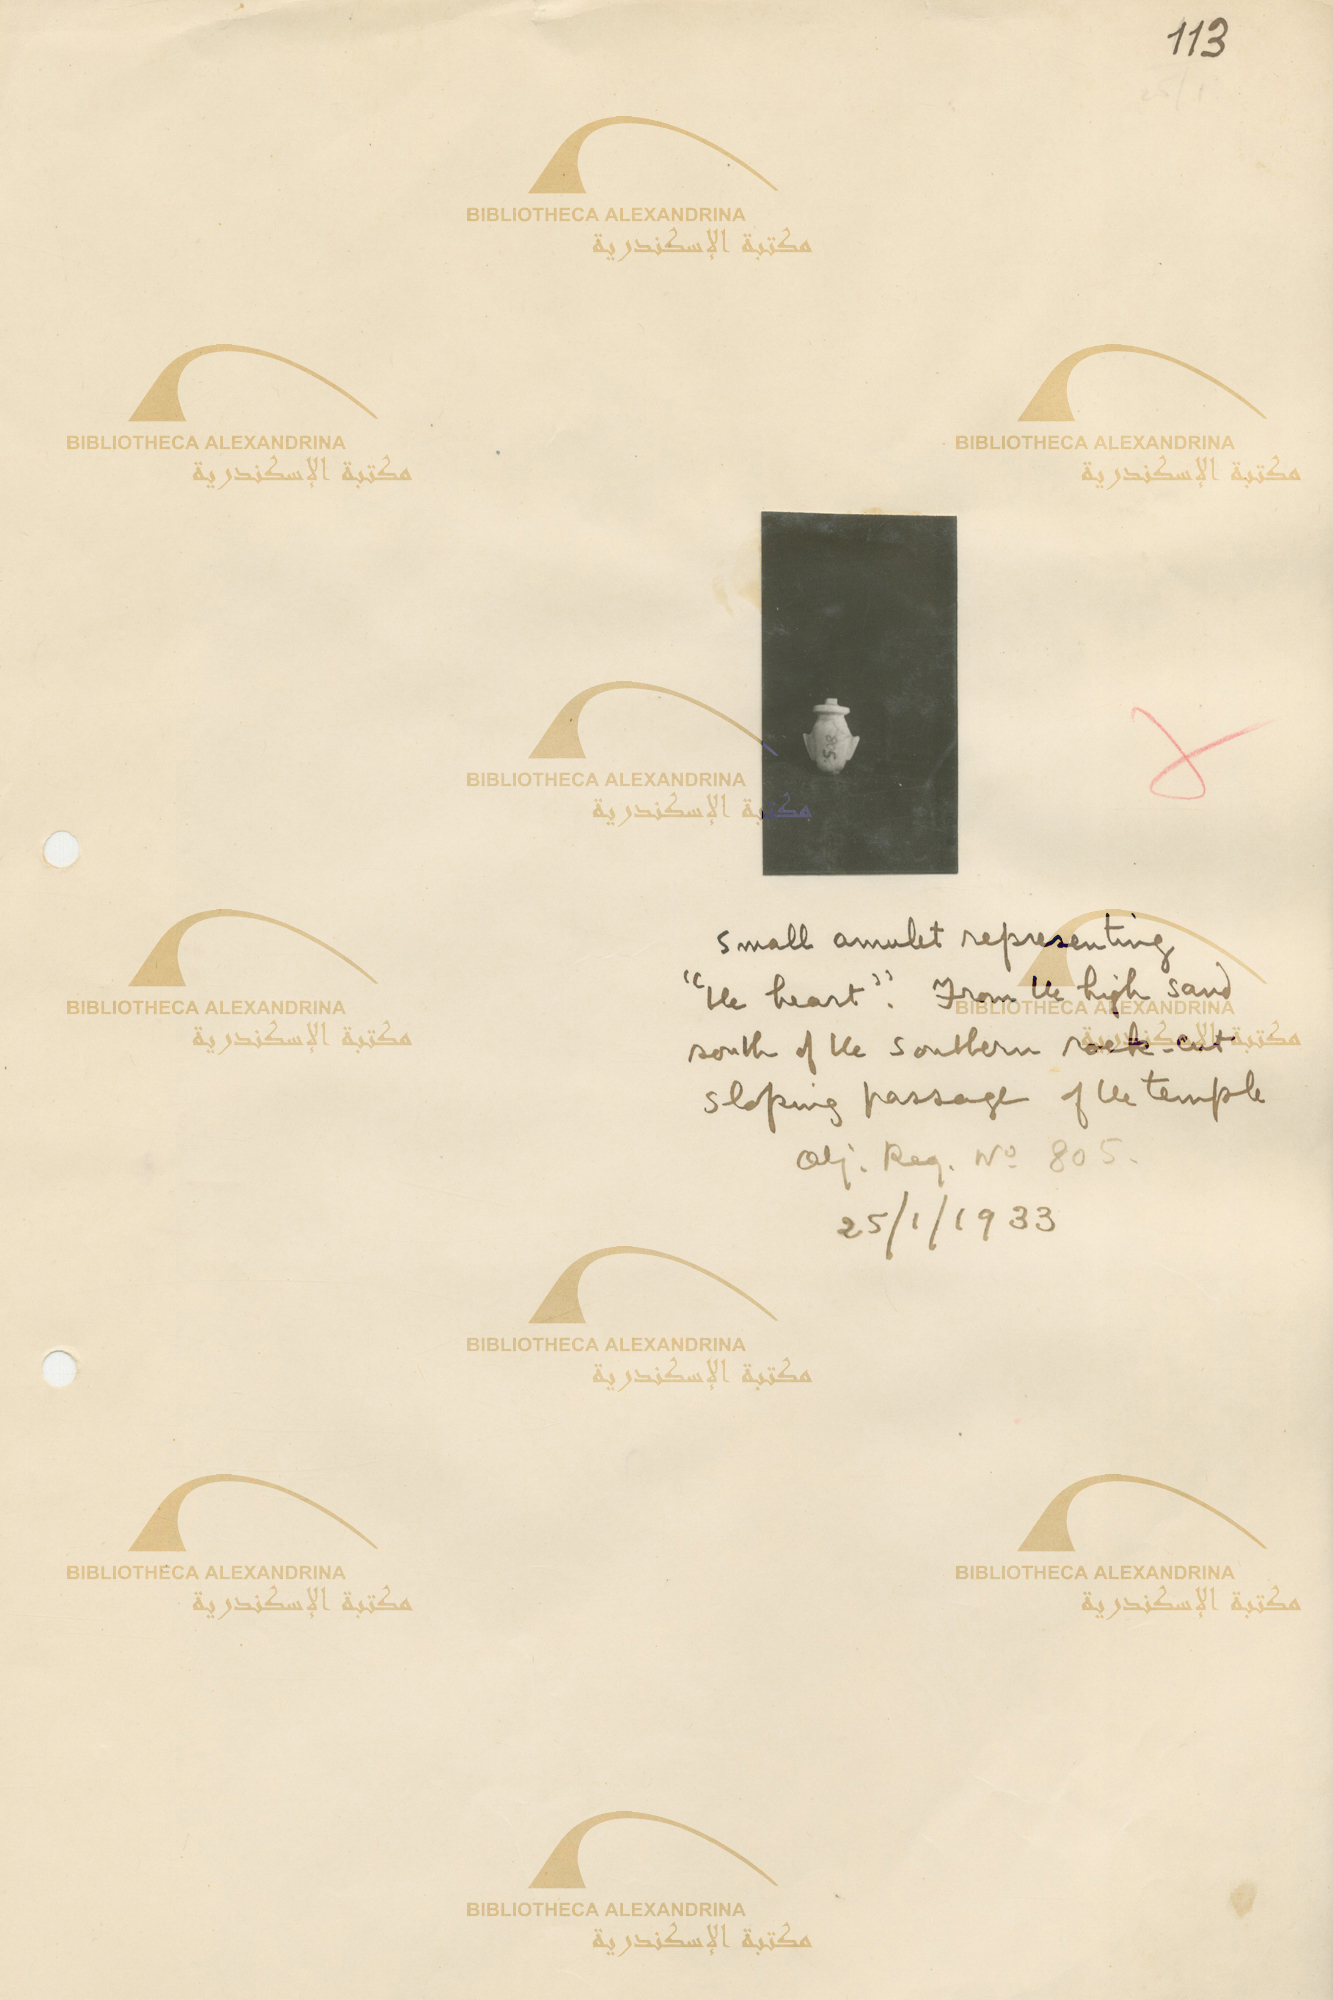 113
BIBLIOTHECA ALEXANDRINA
مكتبة الإسكندرية
BIBLIOTHECA ALEXANDRINA
مكتبة الإسكندرية
BIBLIOTHECA ALEXANDRINA
مكتبة الإسكندرية
BIBLIOTHECA ALEXANDRINA
مكتبة الإسكندرية
small amulet representing
"the heart". From the high sand
south of the southern rock-cut
sloping passage of the temple
Obj. Reg. Nº 805.
25/1/1933
BIBLIOTHECA ALEXANDRINA
مكتبة الإسكندرية
BIBLIOTHECA ALEXANDRINA
مكتبة الإسكندرية
BIBLIOTHECA ALEXANDRINA
مكتبة الإسكندرية
BIBLIOTHECA ALEXANDRINA
مكتبة الإسكندرية
BIBLIOTHECA ALEXANDRINA
مكتبة الإسكندرية
BIBLIOTHECA ALEXANDRINA
مكتبة الإسكندرية